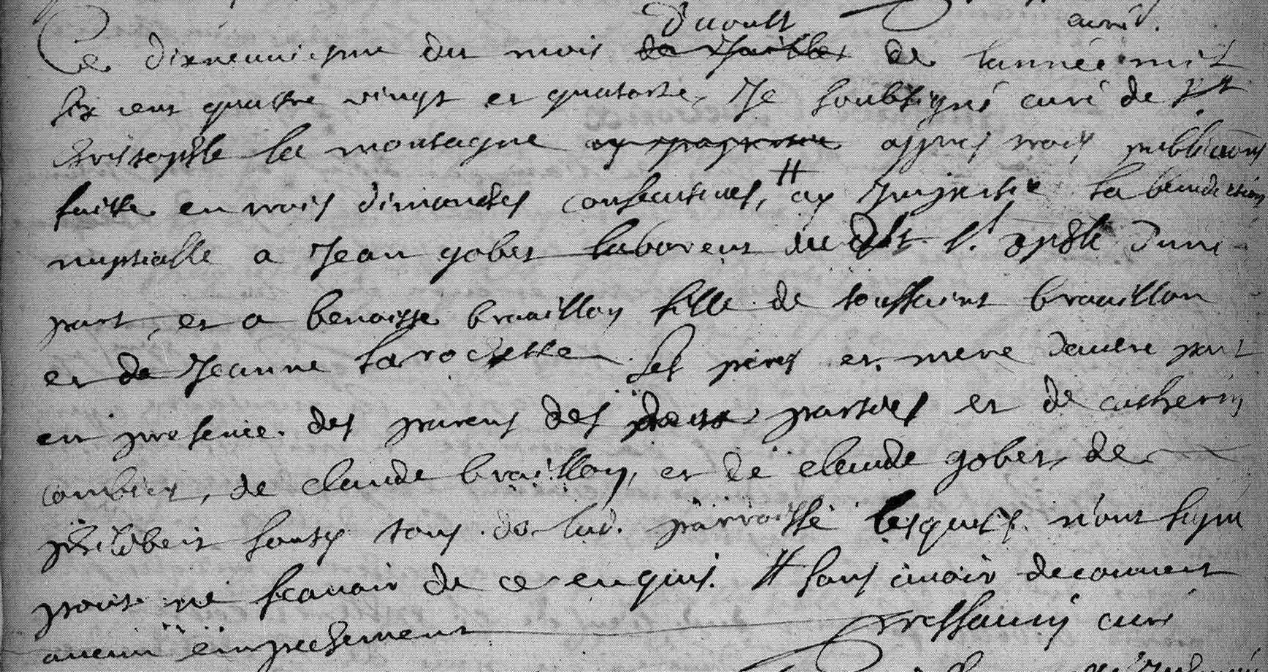 d'aoust curé.
Ce dixneuviesme du mois de Juillet de lannée mil
six cent quattre vingt et quatorse, Je soubsigné curé de St
Cristophle la montagne appres trois publicaons
faitte en trois dimanches consecutives, # ay Imperti la benediction
nuptialle a Jean gobet laboreur du dit St. ophle dune
part et a benoiste braillon fille de toussaint braillon
et de Jeanne Larochette Ses peres et mere dautre part
en presence des parens des deux parties et de catherin
combier, de claude braillon, et de claude gobet, de
philibert sousy tous de lad. parroisse lesquels n'ont signe
pour ne scavoir de ce enquis. # sans avoir decouvert
aucun empechement curé